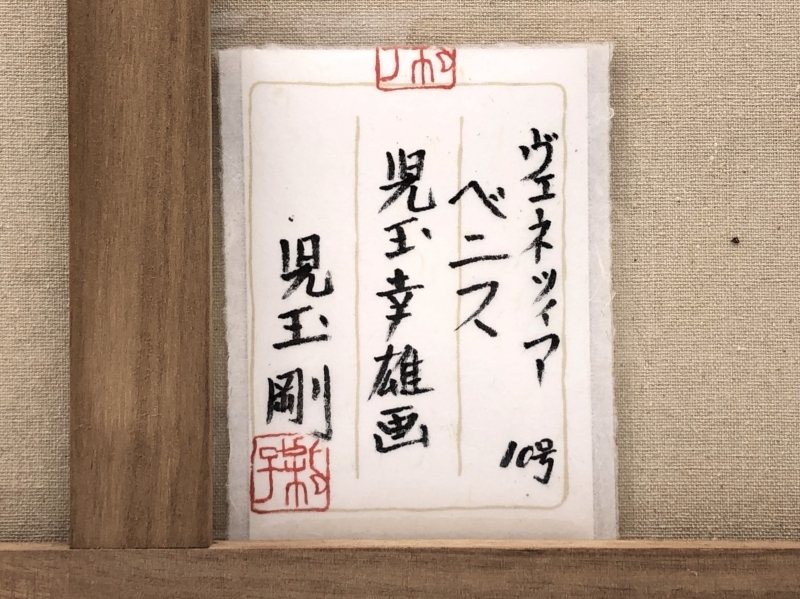 ヴェネツィア 10号
ベニス
児玉幸雄画
児玉剛